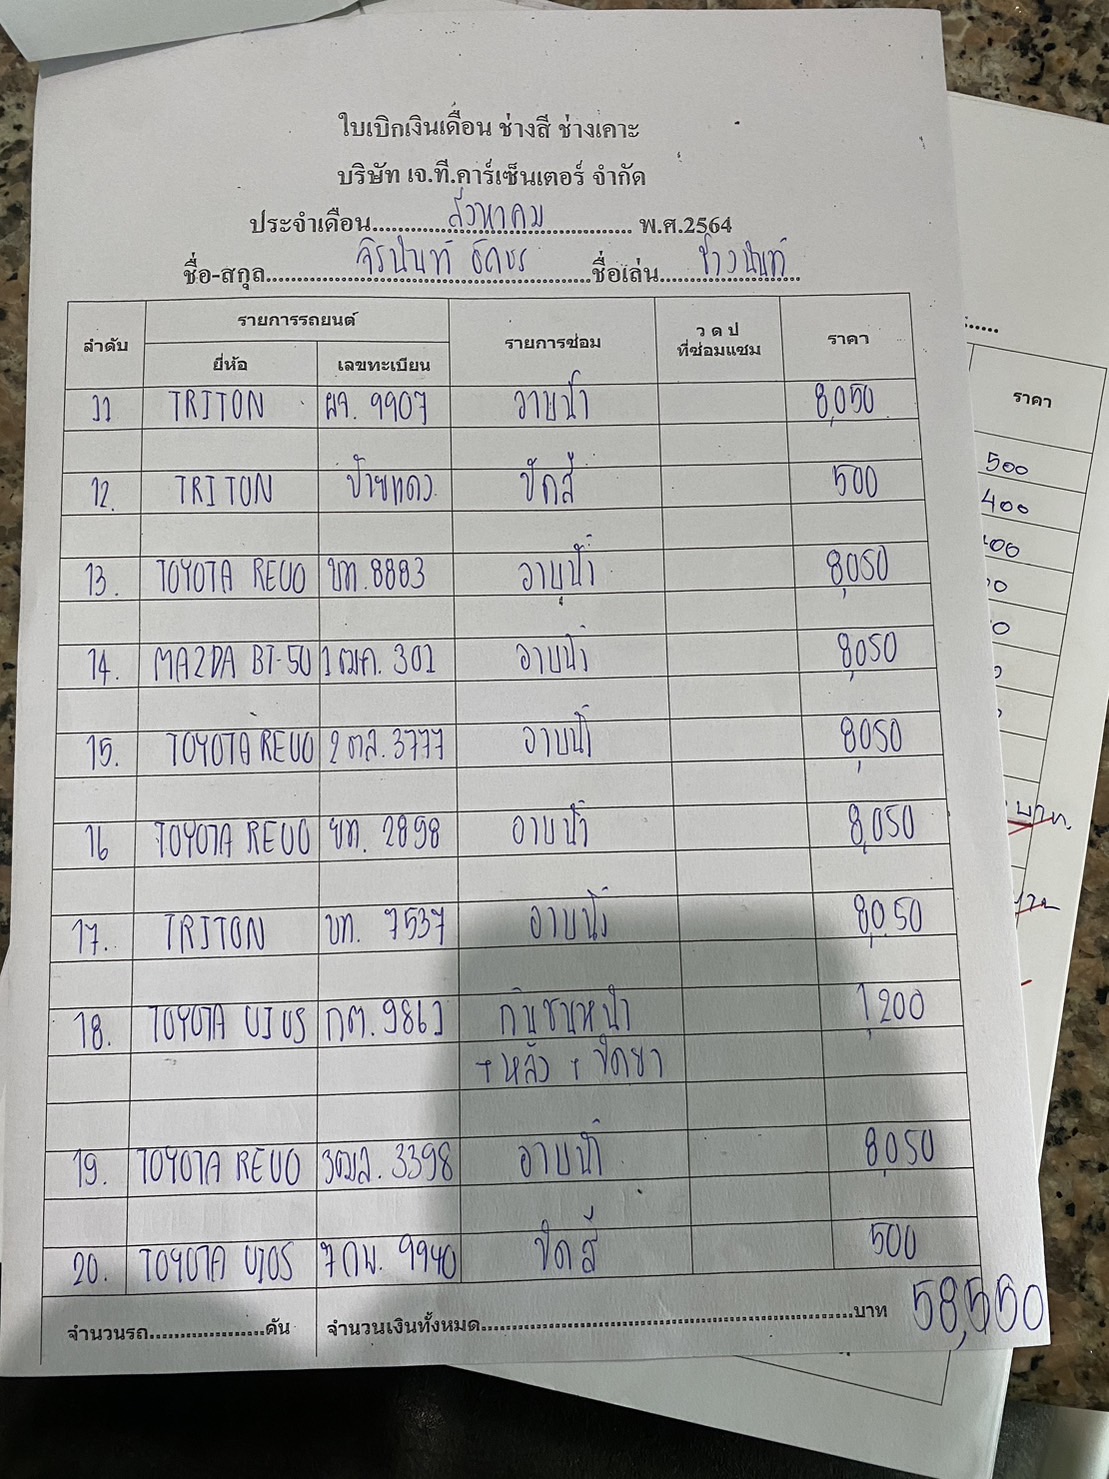 ใบเบิกเงินเดือน ช่างสี ช่างเคาะ
บริษัท เจ.ที.คาร์เซ็นเตอร์ จำกัด
ประจำเดือน สิงหาคม พ.ศ.2564
ชื่อ-สกุล จิรนันท์ ชื่อเล่น ช่างนันท์
ลำดับ รายการรถยนต์ รายการซ่อม ว ด ป ที่ซ่อมแซม ราคา
ยี่ห้อ เลขทะเบียน
11 TRITON ผจ. 9907 อาบน้ำ 8,050
12. TRITON ป้ายแดง ขัดสี 500
13. TOYOTA REVO บท. 8883 อาบน้ำ 8,050
14. MAZDA BT-50 1ฒค. 301 อาบน้ำ 8,050
15. TOYOTA REVO 2 ตส. 3777 อาบน้ำ 8,050
16 TOYOTA REVO ยท. 2898 อาบน้ำ 8,050
17. TRITON บท. 7537 อาบน้ำ 8,050
18. TOYOTA VIOS กต. 9861 กันชนหน้า 1,200
+ หลัง + ขัดยา
19. TOYOTA REVO 3ฒล. 3398 อาบน้ำ 8,050
20. TOYOTA VIOS 7 กพ. 9940 ขัดสี 500
จำนวนรถ คัน จำนวนเงินทั้งหมด บาท 58,550
ราคา
500
400
บาท.